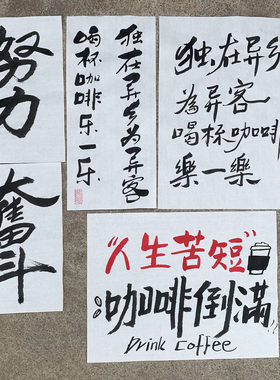 努
力
独在异乡为异客
喝杯咖啡乐一乐
独在异乡
為异客
喝杯咖啡
樂一樂
奮
斗
"人生苦短"
咖啡倒滿!!
Drink Coffee